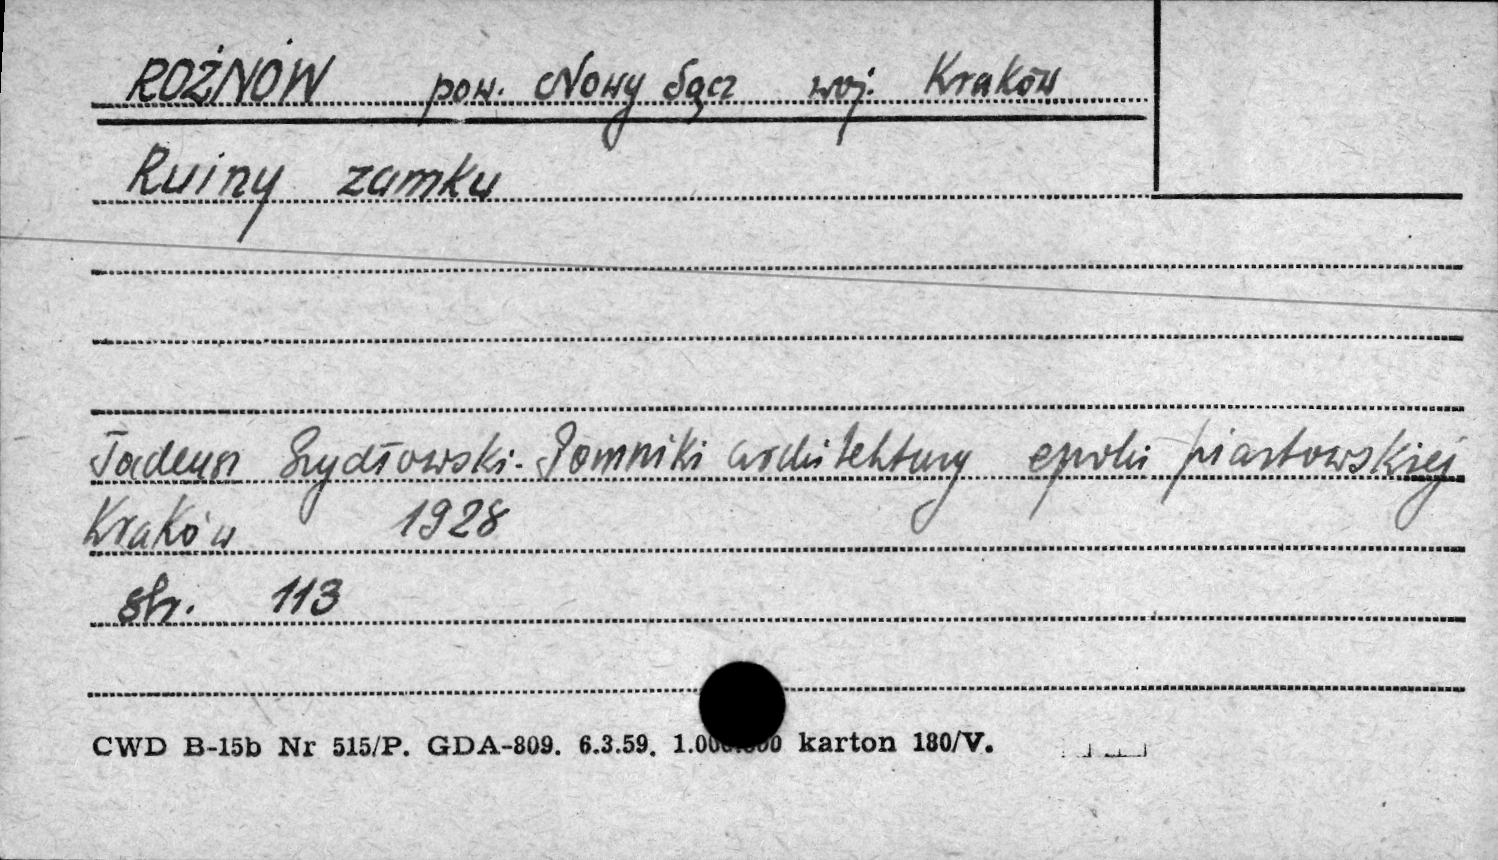 ROŻNÓW pow. Nowy Sącz woj. Kraków
Ruiny zamku
Tadeusz Szydłowski - Pomniki architektury epoki piastowskiej
Kraków 1928
str. 113
CWD B-15b Nr 515/P. GDA-809. 6.3.59. 1.000.000 karton 180/V.